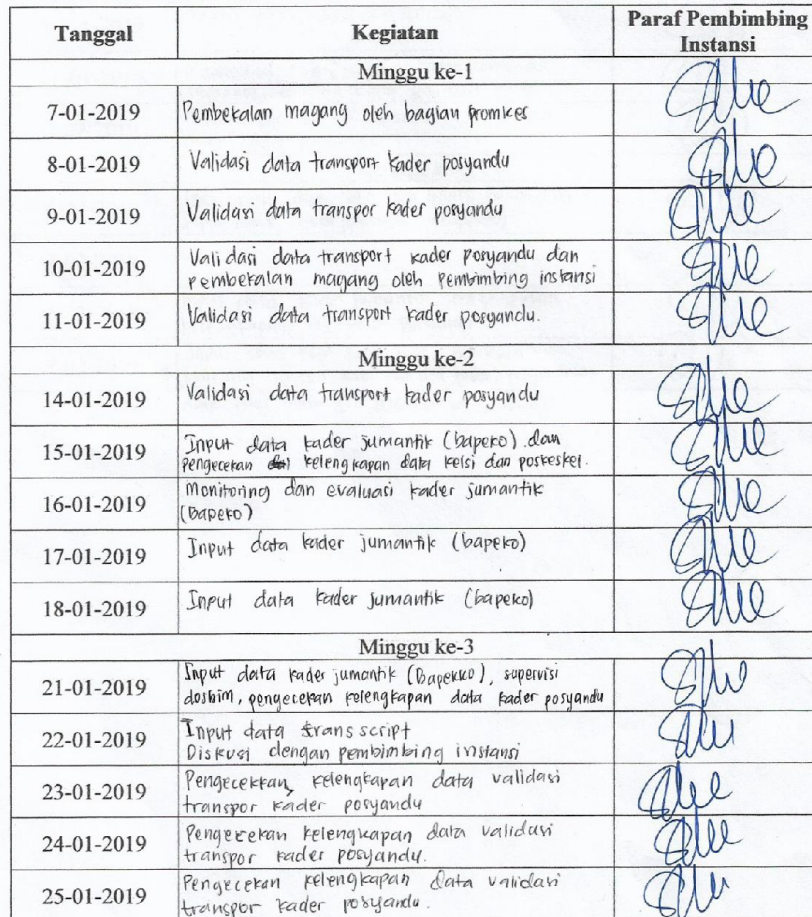 Tanggal Kegiatan Paraf Pembimbing Instansi
Minggu ke-1
7-01-2019 Pembekalan magang oleh bagian promkes
8-01-2019 Validasi data transport kader posyandu
9-01-2019 Validasi data transpor kader posyandu
10-01-2019 Validasi data transport kader posyandu dan
pembekalan magang oleh pembimbing instansi
11-01-2019 Validasi data transport kader posyandu.
Minggu ke-2
14-01-2019 Validasi data transport kader posyandu
15-01-2019 Input data kader jumantik (bapeko) dan
pengecekan kelengkapan data kelsi dan poskeskel.
16-01-2019 Monitoring dan evaluasi kader jumantik
(Bapeko)
17-01-2019 Input data kader jumantik (bapeko)
18-01-2019 Input data kader jumantik (bapeko)
Minggu ke-3
21-01-2019 Input data kader jumantik (Bapekko), supervisi
dosbim, pengecekan kelengkapan data kader posyandu
22-01-2019 Input data transcript
Diskusi dengan pembimbing instansi
23-01-2019 Pengecekkan kelengkapan data validasi
transpor kader posyandu
24-01-2019 Pengecekan kelengkapan data validasi
transpor kader posyandu.
25-01-2019 Pengecekan kelengkapan data validasi
transpor kader posyandu.